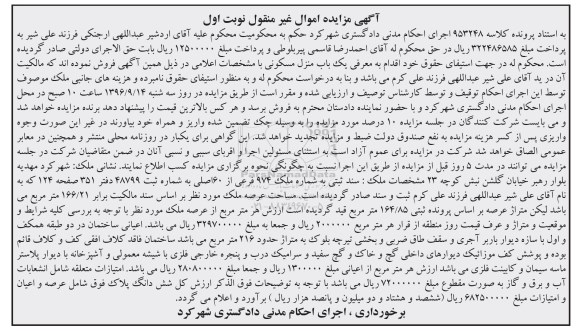 آگهی مزایده اموال غیر منقول نوبت اول
به استناد پرونده کلاسه ۹۵۳۲۴۸ اجرای احکام مدنی دادگستری شهرکرد حکم به محکومیت محکوم علیه آقای اردشیر عبداللهی ارجنکی فرزند علی شیر به
پرداخت مبلغ ۳۲۲۴۸۶۵۸۵ ریال در حق محکوم له آقای احمدرضا قاسمی پیربلوطی و پرداخت مبلغ ۱۲۵۰۰۰۰۰ ریال بابت حق الاجرای دولتی صادر گردیده
است. محکوم له در جهت استیفای حقوق خود اقدام به معرفی یک باب منزل مسکونی با مشخصات اعلامی در ذیل همین آگهی فروش نموده اند که مالکیت
آن در ید آقای علی شیر عبداللهی فرزند علی کرم می باشد و بنا به درخواست محکوم له و به منظور استیفای حقوق نامبرده و هزینه های جانبی ملک موصوف
توسط این اجرای احکام توقیف و توسط کارشناس توصیف و ارزیابی شده و مقرر است از طریق مزایده در روز سه شنبه ۱۳۹۶/۹/۱۴ ساعت ۱۰ صبح در محل
اجرای احکام مدنی دادگستری شهرکرد و با حضور نماینده دادستان محترم به فروش برسد و هر کس بالاترین قیمت را پیشنهاد دهد برنده مزایده خواهد شد
و می بایست شرکت کنندگان در جلسه مزایده ۱۰ درصد مورد مزایده را به وسیله چک تضمین شده واریز و همراه خود بیاورند در غیر این صورت وجه
واریزی پس از کسر هزینه مزایده به نفع صندوق دولت ضبط و مزایده تجدید خواهد شد. این گواهی برای یکبار در روزنامه محلی منتشر و همچنین در معابر
عمومی الصاق خواهد شد شرکت در مزایده برای عموم آزاد است به استثنای مسئولین اجرا و اقربای سببی و نسبی آنان در ضمن متقاضیان شرکت در جلسه
مزایده می توانند در مدت ۵ روز قبل از مزایده از طریق این اجرا نسبت به چگونگی نحوه برگزاری مزایده کسب اطلاع نمایند. نشانی ملک: شهرکرد مهدیه
بلوار رهبر خیابان گلشن نبش کوچه ۲۳ مشخصات ملک: سند ثبتی به شماره ملک ۸۷۴ فرعی از ۶۰اصلی به شماره ثبت ۴۸۷۹۹ دفتر ۳۵۱ صفحه ۱۲۴ که به
نام آقای علی شیر عبداللهی فرزند علی کرم ثبت و سند صادر گردیده است. مساحت عرصه ملک مورد نظر بر اساس سند مالکیت برابر ۱۶۶/۲۱ متر مربع می
باشد لیکن متراژ عرصه بر اساس پرونده ثبتی ۱۶۴/۸۵ متر مربع قید گردیده است. ارزش هر متر مربع از عرصه ملک مورد نظر با توجه به بررسی کلیه شرایط و
موقعیت و متراژ و عرف قیمت روز منطقه از قرار هر متر مربع ۲۰۰۰۰۰۰ ریال و جمعا به مبلغ ۳۲۹۷۰۰۰۰۰ ریال می باشد. اعیانی ساختمان در دو طبقه همکف
و اول با سازه دیوار باربر آجری و سقف طاق ضربی و بخشی تیرچه بلوک به متراژ حدود ۲۱۶ متر مربع می باشد ساختمان فاقد کلاف افقی کف و کلاف قائم
بوده و پوشش کف موزائیک دیوارهای داخلی گچ و خاک و گچ سفید و سرامیک درب و پنجره خارجی فلزی با شیشه معمولی و آشپزخانه با دیوار پلاستر
ماسه سیمان و کابینت فلزی می باشد ارزش هر متر مربع از اعیانی مبلغ ۱۳۰۰۰۰۰ ریال و جمعا مبلغ ۲۸۰۸۰۰۰۰۰ ریال می باشد. امتیازات متعلقه شامل انشعابات
آب و برق و گاز به صورت مقطوع مبلغ ۷۲۰۰۰۰۰۰ ریال می باشد با توجه به توضیحات فوق الذکر ارزش کل شش دانگ پلاک فوق شامل عرصه و اعیان
و امتیازات مبلغ ۶۸۲۵۰۰۰۰۰ (ششصد و هشتاد و دو میلیون و پانصد هزار ریال ) برآورد و اعلام می گردد.
برخورداری ، اجرای احکام مدنی دادگستری شهرکرد